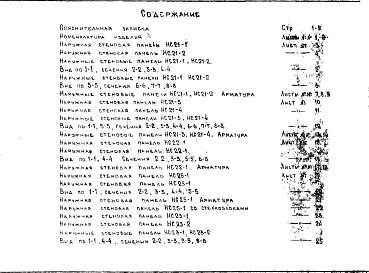 СОДЕРЖАНИЕ
ПОЯСНИТЕЛЬНАЯ ЗАПИСКА СТР
НОМЕНКЛАТУРА ИЗДЕЛИЙ
НАРУЖНАЯ СТЕНОВАЯ ПАНЕЛЬ НС21-1
НАРУЖНАЯ СТЕНОВАЯ ПАНЕЛЬ НС21-2
НАРУЖНЫЕ СТЕНОВЫЕ ПАНЕЛИ НС21-1, НС21-2.
ВИД ПО 1-1, СЕЧЕНИЯ 2-2, 3-3, 4-4
НАРУЖНЫЕ СТЕНОВЫЕ ПАНЕЛИ НС21-1 НС21-2
ВИД ПО 5-5, СЕЧЕНИЯ 6-6, 7-7, 8-8
НАРУЖНЫЕ СТЕНОВЫЕ ПАНЕЛИ НС21-1, НС21-2 АРМАТУРА
НАРУЖНАЯ СТЕНОВАЯ ПАНЕЛЬ НС21-3 ЛИСТ 10
НАРУЖНАЯ СТЕНОВАЯ ПАНЕЛЬ НС21-4 11
НАРУЖНЫЕ СТЕНОВЫЕ ПАНЕЛИ НС21-3, НС21-4
ВИД ПО 1-1, СЕЧЕНИЯ 12
НАРУЖНЫЕ СТЕНОВЫЕ ПАНЕЛИ НС21-3, НС21-4. АРМАТУРА
НАРУЖНАЯ СТЕНОВАЯ ПАНЕЛЬ НС22-1
НАРУЖНАЯ СТЕНОВАЯ ПАНЕЛЬ НС22-1.
ВИД ПО 1-1, 4-4 СЕЧЕНИЯ 2-2, 3-3, 5-5, 6-6
НАРУЖНАЯ СТЕНОВАЯ ПАНЕЛЬ НС22-1. АРМАТУРА
НАРУЖНАЯ СТЕНОВАЯ ПАНЕЛЬ
НАРУЖНАЯ СТЕНОВАЯ ПАНЕЛЬ
ВИД ПО 1-1, СЕЧЕНИЯ 2-2, 3-3, 4-4, 5-5
НАРУЖНАЯ СТЕНОВАЯ ПАНЕЛЬ АРМАТУРА
НАРУЖНАЯ СТЕНОВАЯ ПАНЕЛЬ СО СТЕКЛОБЛОКАМИ
НАРУЖНАЯ СТЕНОВАЯ ПАНЕЛЬ
НАРУЖНАЯ СТЕНОВАЯ ПАНЕЛЬ
НАРУЖНЫЕ СТЕНОВЫЕ ПАНЕЛИ
ВИД ПО 1-1, 4-4, СЕЧЕНИЯ 2-2, 3-3, 5-5, 6-6 25